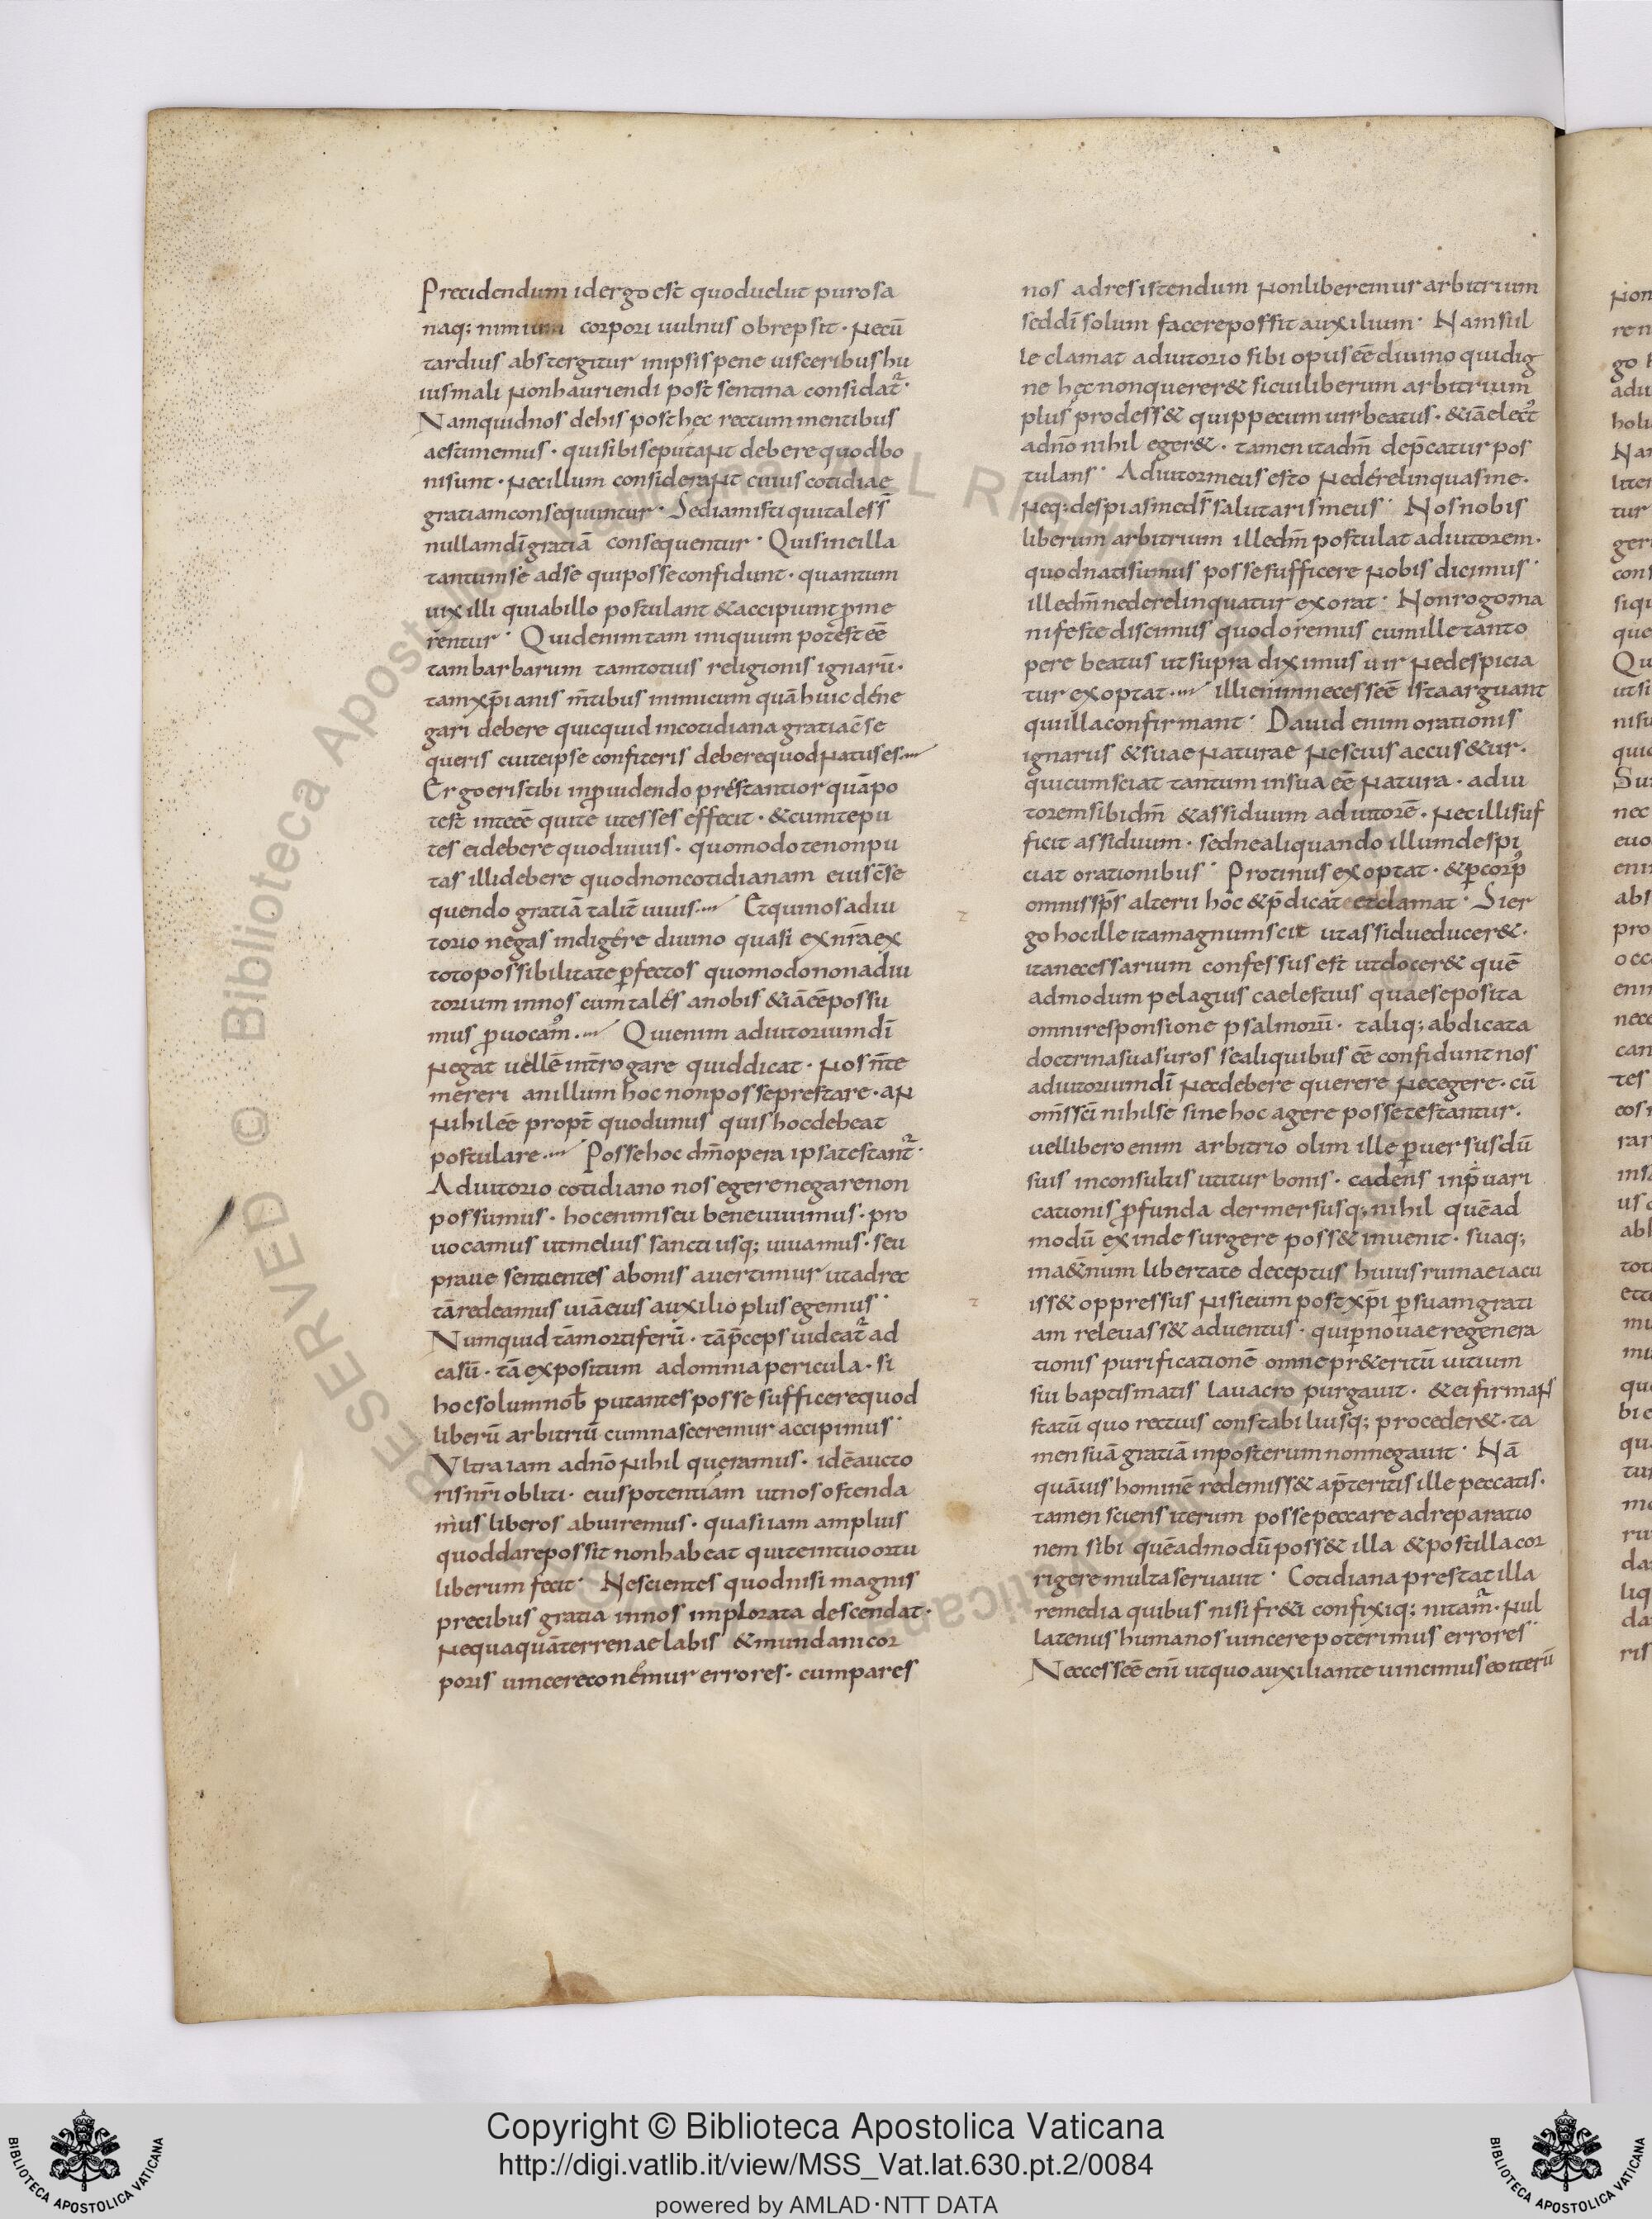 Precidendum id ergo est quod uelut puro sa
naq; nimium corpori uulnus obrepsit · Ne cū
tardius abstergitur in ipsis pene uisceribus hu
ius mali Non hauriendi post sentina considat᷑ ·
Nam quid nos de his post hęc rectum mentibus
aestimemus · qui sibi se putaNt debere quod bo
ni sunt · Nec illum consideraNt cuius cotidiae
gratiam consequuntur · Sed iam isti qui tales s̄
nullam dī gratiā consequentur · Qui sine illa
tantum se adse qui posse confidunt · quantum
uix illi qui ab illo postulant & accipiunt ꝓme
rentur · Quid enim tam iniquum potēst eē
tam barbarum tam totius religionis ignarū ·
tam xp̄ianis m̄tibus inimicum quā huic déne
gari debere quicquid in cotidiana gratia cōse
queris cui te ipse confiteris debere quod Natus es ·
Ergo eris tibi in ꝓuidendo prestantior quā po
test in te eē qui te ut esses effecit · & cum te pu
tes ei debere quod uiuis · quomodo te non pu
tas illi debere quod non cotidianam eius c̄se
quendo gratiā talit̄ uiuis · Et qui nos adiu
torio negas indigére diuino quasi ex nr̄a ex
toto possibilitate ꝑfectos quomodo non adiu
torium in nos cum talés a nobis & iā eē possu
mus ꝓuocam᷒ · Qui enim adiutorium dī
Negat uellē int̄rogare quid dicat · Nos n̄ te
mereri an illum hoc non posse prestare · aN
Nihil eé propt̄ quod unus quis hoc debeat
postulare · Posse hoc dm̄ opera ipsa testant᷑ ·
Adiutorio cotidiano nos egere negare non
possumus · hoc enim seu bene uiuimus · pro
uocamus ut melius sancti usq; uiuamus · seu
praue sentientes a bonis auertimur ut ad rec
tā redeamus uiā eius auxilio plus egemus ·
Numquid tā mortiferū · tā p̄ceps uideat᷑ ad
casū · tā expositum ad omnia pericula · si
hoc solum nob̄ putantes posse sufficere quod
liberū arbitriū cum nasceremur accipimus ·
Vltra iam ad nō Nihil queramus · idē aucto
ris nr̄i obliti · eius potentiam ut nos ostenda
mus liberos abuiremus · quasi iam amplius
quod dare possit non habeat qui te in tuo ortu
liberum fecit · Nescientes quod nisi magnis
precibus gratia in nos implorata descendat ·
Nequaquā terrenae labis & mundani cor
poris uincere conemur errores · cum pares
nos ad resistendum Non liberemur arbitrium
sed dī solum facere possit auxilium · Nam sul
le clamat adiutorio sibi opus eē diuino qui dig
ne hęc non querer& si cui liberum arbitrium
plus prodess& quippe cum uir beatus · & iā elect᷒
ad nō nihil eger& · tamen ita dm̄ dep̄catur pos
tulans · Adiutor meus esto Ne dérelinquas me ·
Neq; despias me ds̄ salutaris meus · Nos nobis
liberum arbitrium ille dm̄ postulat adiutorem ·
quod nati sumus posse sufficere Nobis dicimus ·
ille dm̄ ne derelinquatur exorat · Non rogo ma
nifeste discimus quod oremus cum ille tanto
pere beatus ut supra diximus uir Ne despicia
tur exoptat · illi enim necesse ē ista arguant
qui illa confirmant · Dauid enim orationis
ignarus & suae Naturae Nescius accus&ur ·
qui cum sciat tantum in sua eē Natura · adiu
torem sibi dm̄ & assiduum adiutorē · Nec illi suf
ficit assiduum · sed ne aliquando illum despi
ciat orationibus · Protinus exoptat · & ꝑ corp᷒
omnis sp̄s alterii hoc & p̄dicat et clamat · Si er
go hoc ille ita magnum scit ut assidue ducer& ·
ita necessarium confessus est ut docer& quē
admodum pelagius caelestius quae seposita
omni responsione psalmorū · taliq; abdicata
doctrina suasuros se aliquibus eē confidunt nos
adiutorium dī Nec debere querere Nec egere · cū
om̄s scī nihil se sine hoc agere posse testantur ·
uel libero enim arbitrio olim ille ꝑuersus dū
suis inconsultis utitur bonis · cadens in p̄uari
cationis ꝓfunda dermersusq; nihil quēad
modū exinde surgere poss& inuenit · suaq;
ma&num libertate deceptus huius ruinae iacu
iss& oppressus Nisi eum post xp̄i ꝑ suam grati
am releuass& aduentus · qui ꝑ nouae regenera
tionis purificationē omne pr&eritū uitium
sui baptismatis lauacro purgauit · & ei firmaNs
statū quo rectius constabiliusq; proceder& · ta
men suā gratiā in posterum non negauit · Nā
quāuis hominē redemiss& a p̄teritis ille peccatis ·
tamen sciens iterum posse peccare ad reparatio
nem sibi quēadmodū poss& illa & post illa cor
rigere multa seruauit · Cotidiana prestat illa
remedia quibus nisi fr&i confixiq; nitam᷑ · Nul
latenus humanos uincere poterimus errores ·
Neccesse ē enī ut quo auxiliante uincimus eo iterū
Copyright © Biblioteca Apostolica Vaticana
http://digi.vatlib.it/view/MSS_Vat.lat.630.pt.2/0084
powered by AMLAD·NTT DATA
BIBLIOTECA APOSTOLICA VATICANA
BIBLIOTECA APOSTOLICA VATICANA